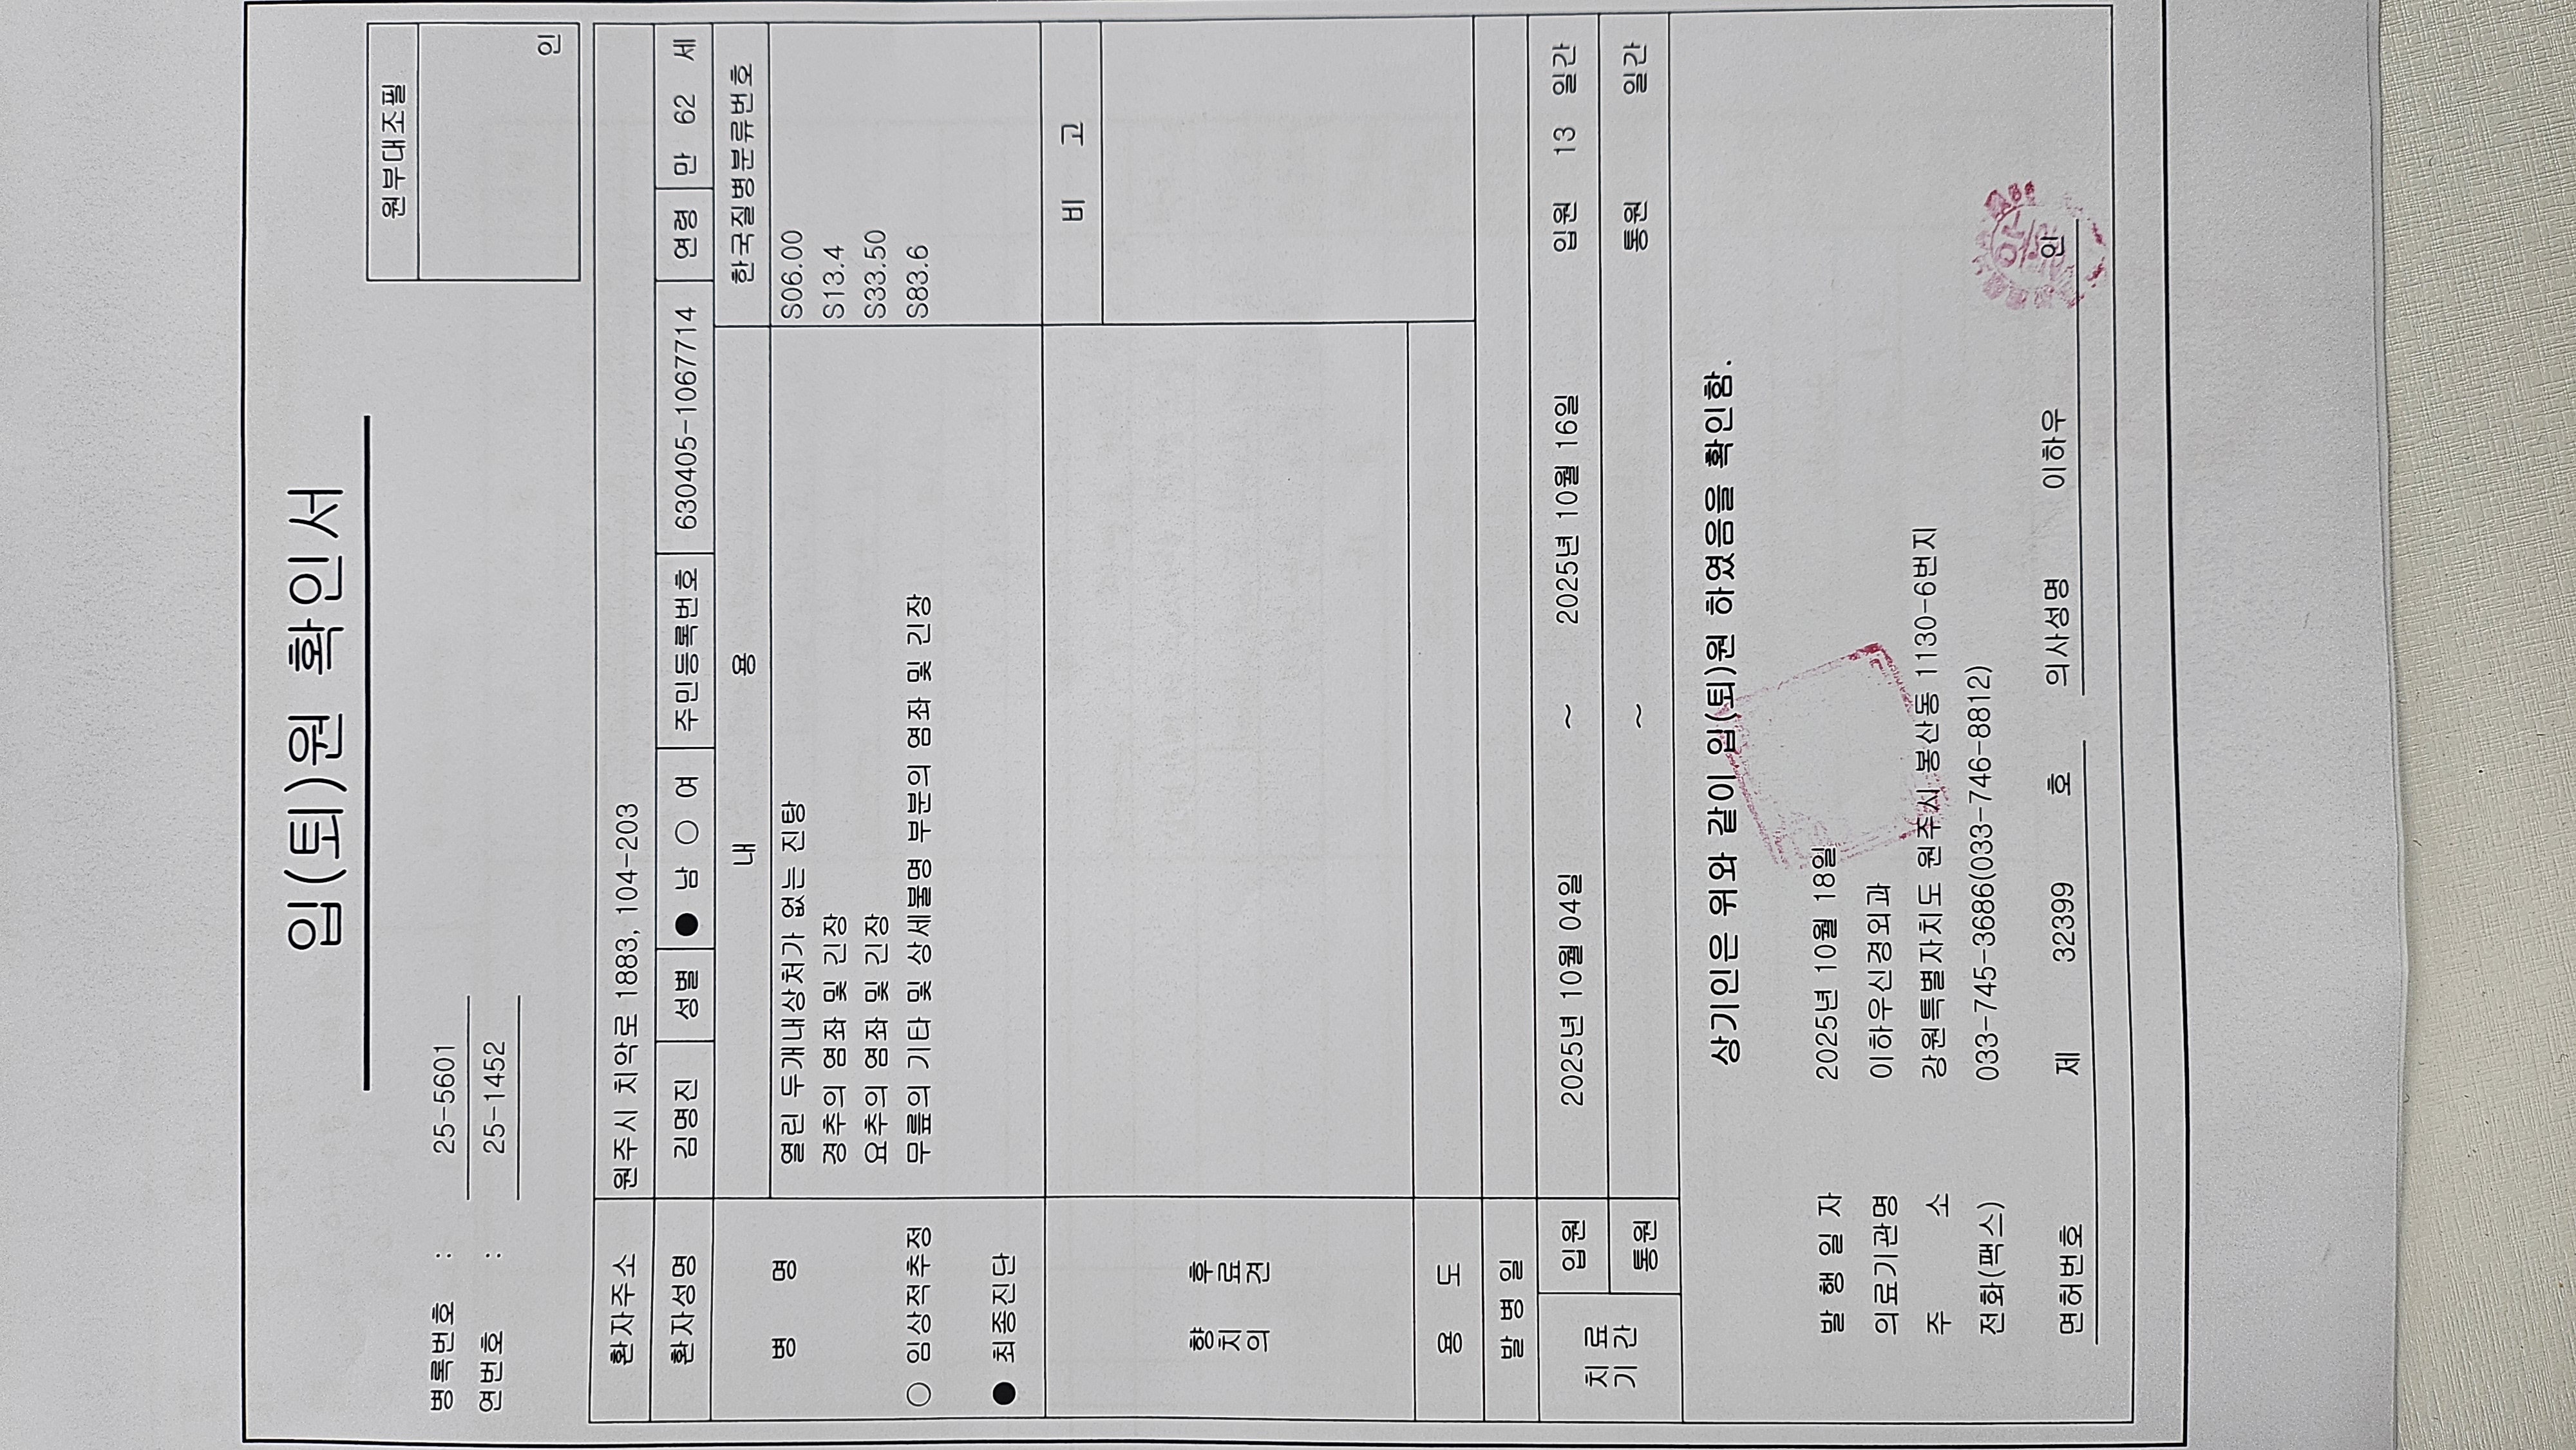 입(퇴)원 확인서
병록번호 : 25-5601
연번호 : 25-1452
원부대조필
인
환자주소 원주시 치악로 1883, 104-203
환자성명 김명진 성별 ● 남 ○ 여 주민등록번호 630405-1067714 연령 만 62 세
병 명 내 용 한국질병분류번호
열린 두개내상처가 없는 진탕 S06.00
경추의 염좌 및 긴장 S13.4
요추의 염좌 및 긴장 S33.50
○ 임상적추정 무릎의 기타 및 상세불명 부분의 염좌 및 긴장 S83.6
● 최종진단
비 고
향 후
치 료
의 견
용 도
발 병 일
치 료
기 간
입원 2025년 10월 04일 ~ 2025년 10월 16일 입원 13 일간
통원 ~ 통원 일간
상기인은 위와 같이 입(퇴)원 하였음을 확인함.
발 행 일 자 2025년 10월 18일
의료기관명 이하우신경외과
주 소 강원특별자치도 원주시 봉산동 1130-6번지
전화(팩스) 033-745-3686(033-746-8812)
면허번호 제 32399 호 의사성명 이하우 인